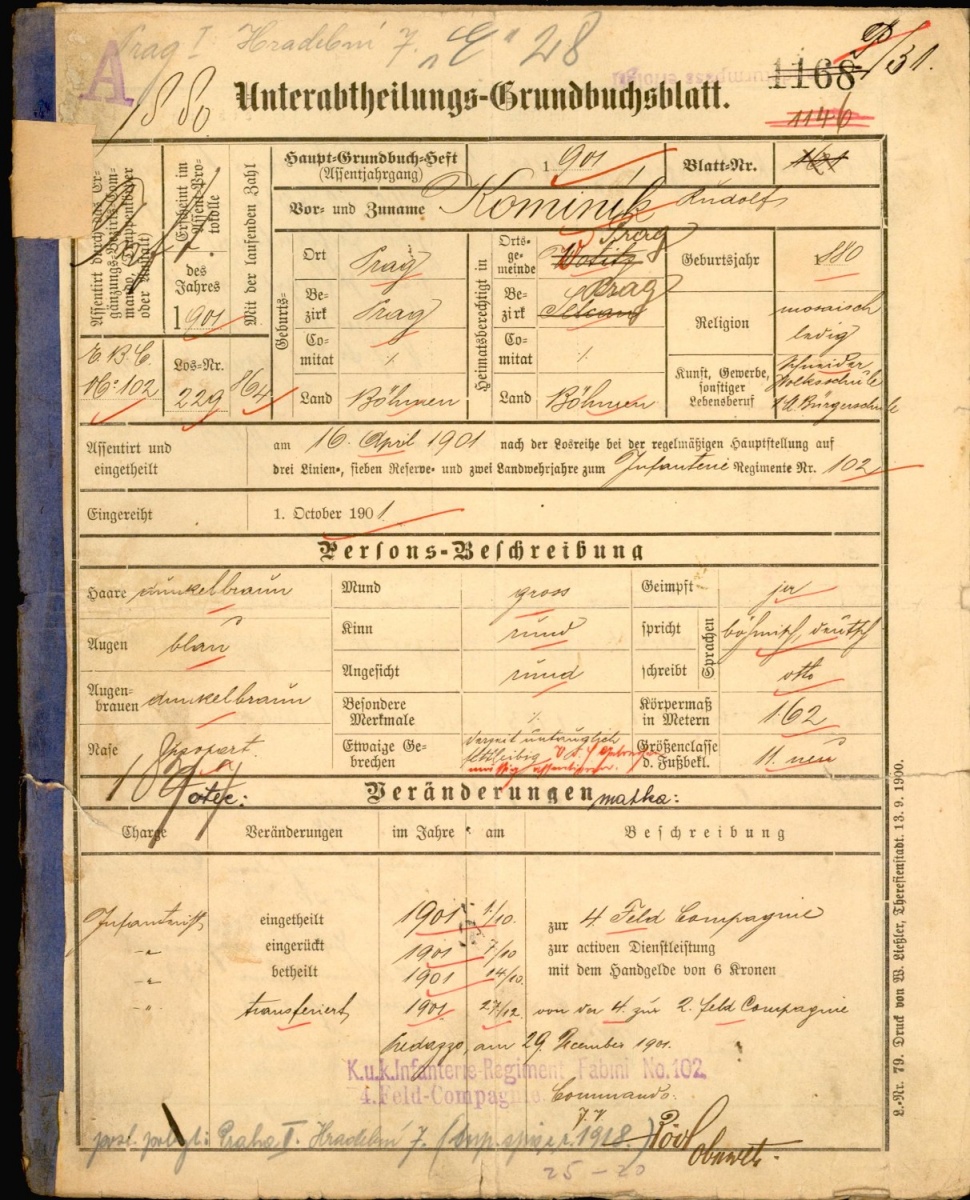 Prag I Hradební 7. "E" 28
A
1880
1168
/31.
1146
Unterabtheilungs-Grundbuchsblatt.
Assentirt durch das Ergänzungs-Bezirks-Commando, (Truppenkörper oder Anstalt)
E. B. C.
No: 102
Erscheint im Assent-Protokolle
des Jahres
1901
Los-Nr.
229
Mit der laufenden Zahl
864
Haupt-Grundbuch-Heft
(Assentjahrgang)
1901
Blatt-Nr.
1621
Vor- und Zuname Kominík Rudolf
Geburts-
Ort Prag
Bezirk Prag
Comitat ./.
Land Böhmen
Heimatsberechtigt in
Ortsgemeinde Wotitz Prag
Bezirk Selcan Prag
Comitat ./.
Land Böhmen
Geburtsjahr 880
Religion mosaisch
ledig
Kunst, Gewerbe, sonstiger Lebensberuf
Schneider
Volksschule
Bürgerschule
Assentirt und eingetheilt
am 16. April 1901 nach der Losreihe bei der regelmäßigen Hauptstellung auf
drei Linien-, sieben Reserve- und zwei Landwehrjahre zum Infanterie Regimente Nr. 102
Eingereiht 1. October 1901.
Persons-Beschreibung
Haare dunkelbraun
Augen blau
Augenbrauen dunkelbraun
Nase
Mund gross
Kinn rund
Angesicht rund
Besondere Merkmale ./.
Etwaige Gebrechen derzeit untauglich
fettleibig
Geimpft ja
spricht böhmisch, deutsch
schreibt
Sprachen
otto
Körpermaß in Metern 1·62
Größenclasse d. Fußbekl. 11. neu
otec:
Veränderungen
matka:
Charge Veränderungen im Jahre am Beschreibung
Infanterist eingetheilt 1901 1/10. zur 4. Feld Compagnie
-"- eingerückt 1901 7/10 zur activen Dienstleistung
-"- betheilt 1901 14/10. mit dem Handgelde von 6 Kronen
-"- transferiert 1901 27/12. von der 4. zur 2. Feld Compagnie
Predazzo, am 29. December 1901.
K.u.k. Infanterie-Regiment Fabini No. 102.
4. Feld-Compagnie.
Commando.
posl. pobyt: Praha I. Hradební 7.
1918.
25-20
L.-Nr. 79. Druck von W. Ließler, Theresienstadt. 13. 9. 1900.